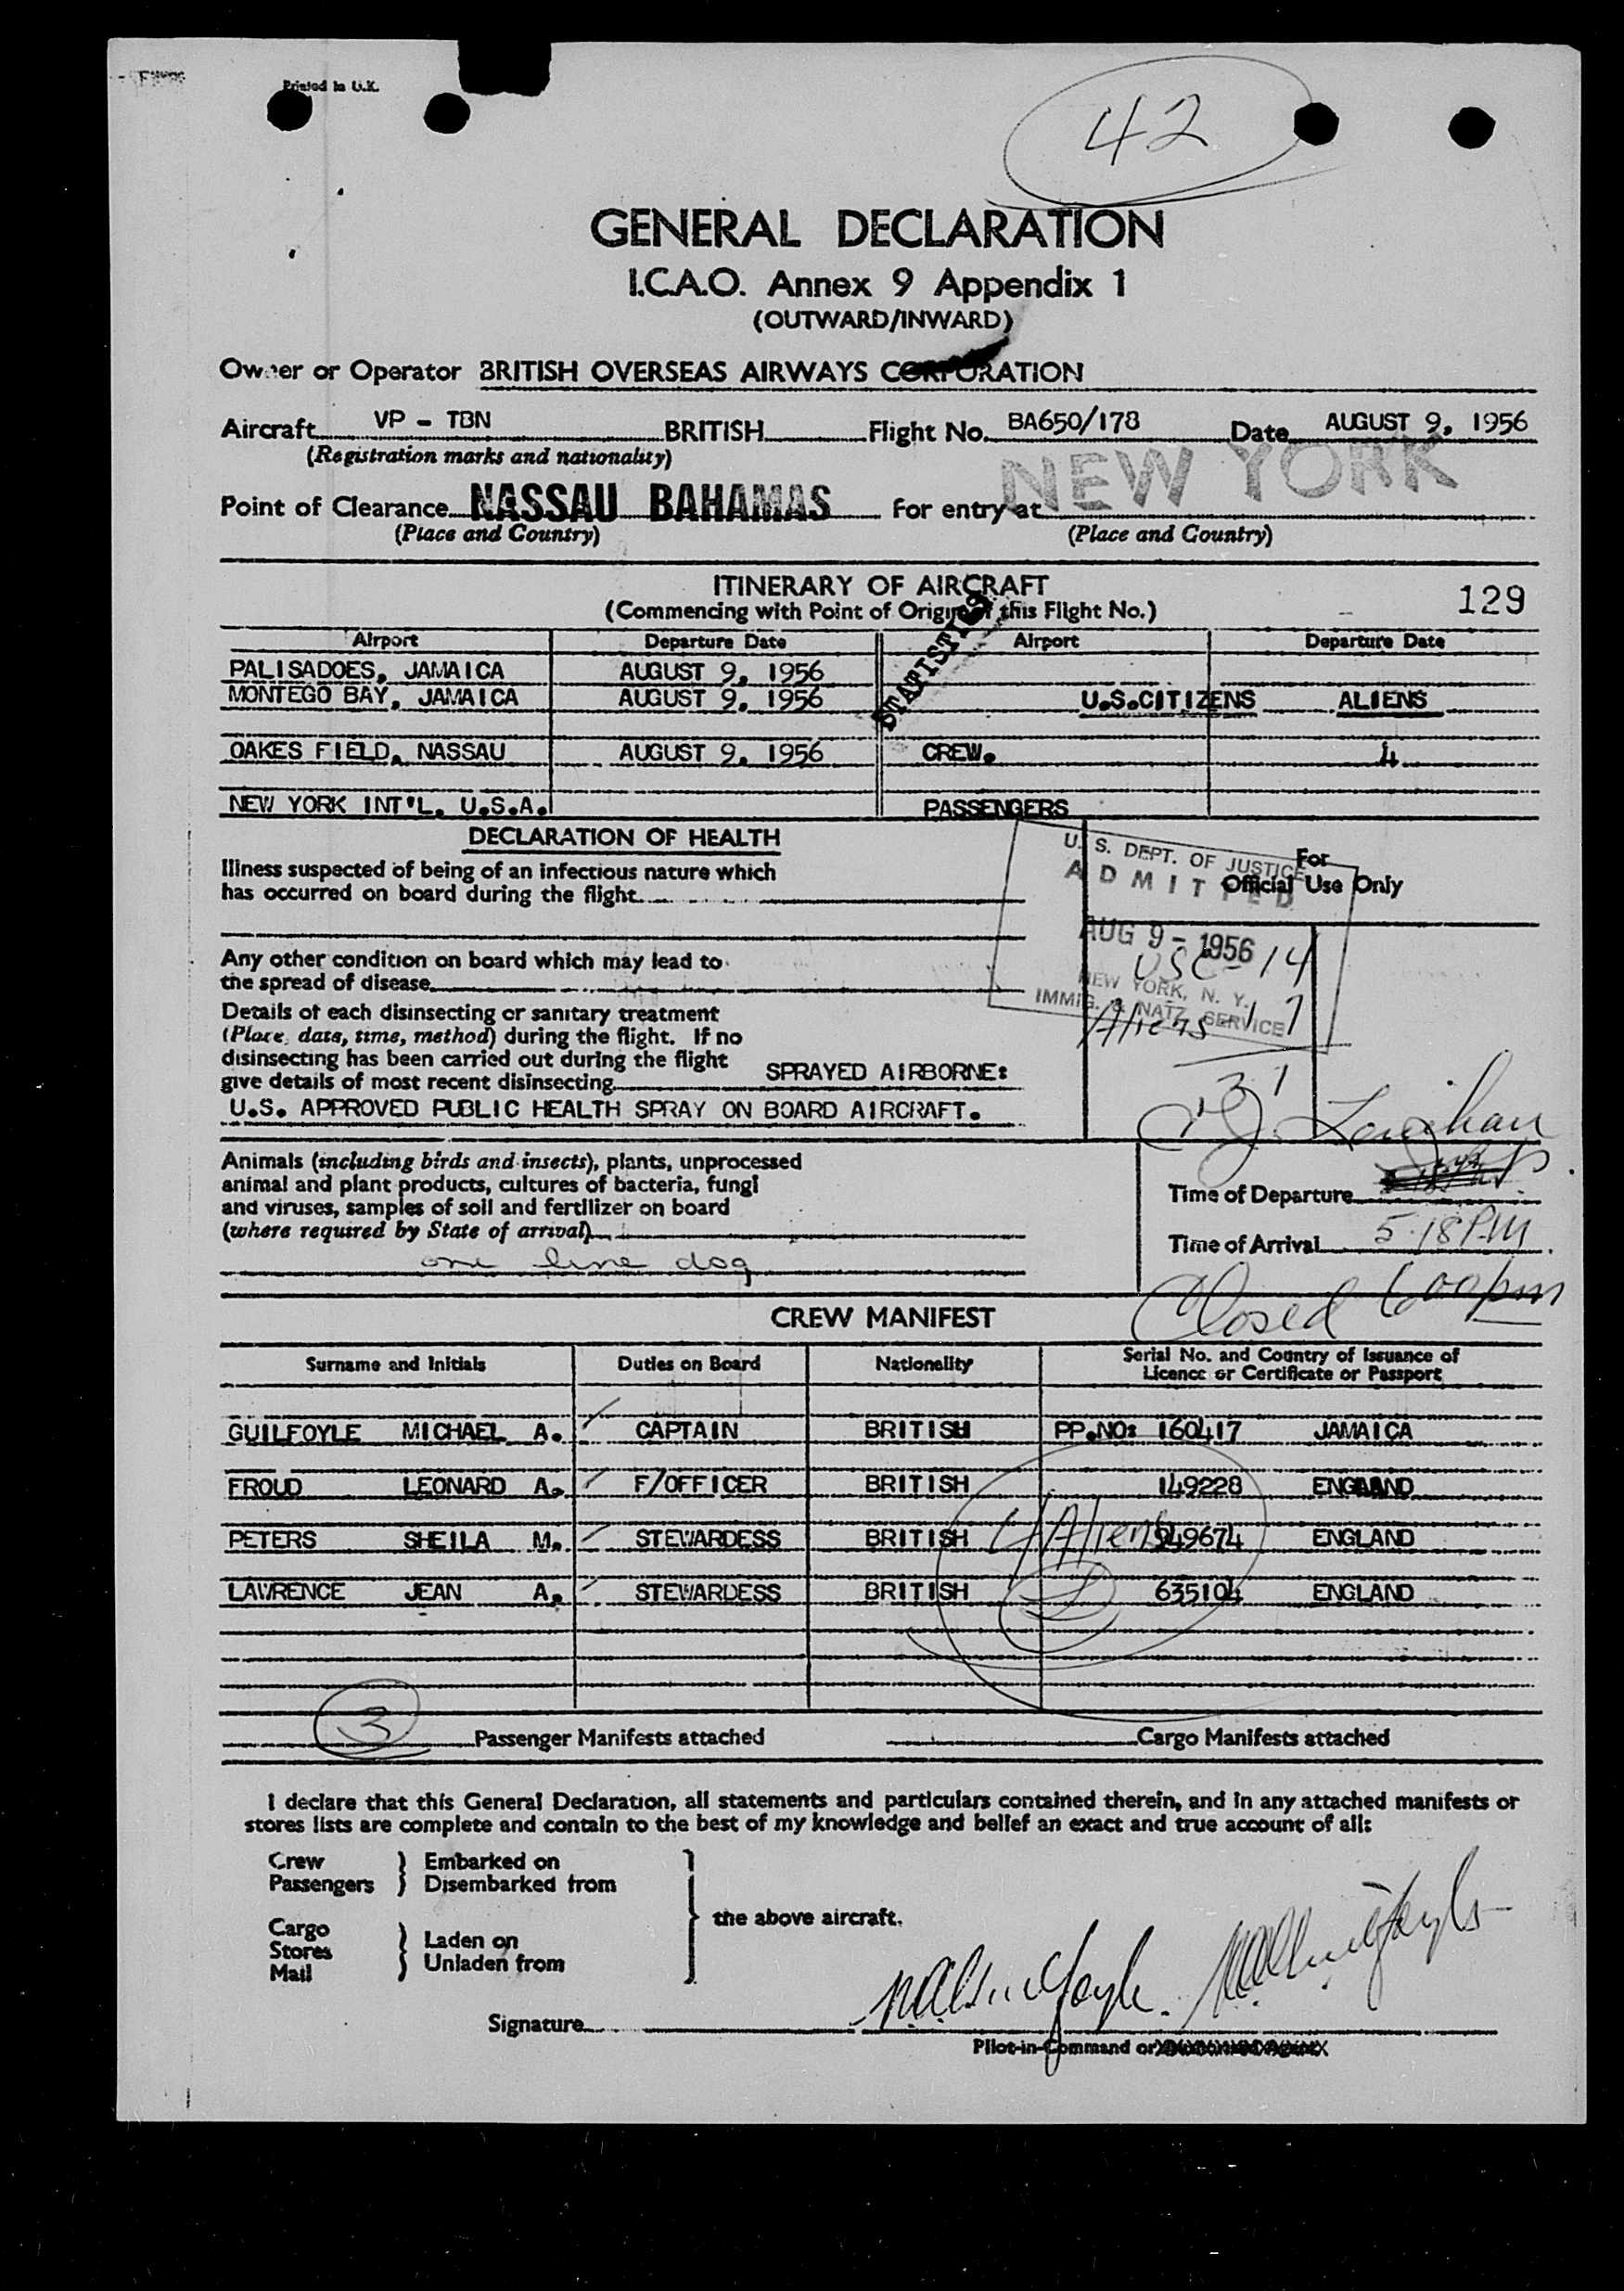 Printed in U.K.
42
GENERAL DECLARATION
I.C.A.O. Annex 9 Appendix 1
(OUTWARD/INWARD)
Owner or Operator BRITISH OVERSEAS AIRWAYS CORPORATION
Aircraft VP - TBN BRITISH Flight No. BA650/178 Date AUGUST 9, 1956
(Registration marks and nationality)
Point of Clearance NASSAU BAHAMAS For entry at NEW YORK
(Place and Country) (Place and Country)
ITINERARY OF AIRCRAFT
(Commencing with Point of Origin of this Flight No.) 129
STATISTICS
Airport Departure Date Airport Departure Date
PALISADOES, JAMAICA AUGUST 9, 1956
MONTEGO BAY, JAMAICA AUGUST 9, 1956 U.S.CITIZENS ALIENS
OAKES FIELD, NASSAU AUGUST 9, 1956 CREW. 4
NEW YORK INT'L. U.S.A. PASSENGERS
DECLARATION OF HEALTH
For
Official Use Only
U. S. DEPT. OF JUSTICE
ADMITTED
AUG 9 - 1956
NEW YORK, N. Y.
IMMIG. & NATZ. SERVICE
USC - 14
Aliens 17
31
Illness suspected of being of an infectious nature which
has occurred on board during the flight
Any other condition on board which may lead to
the spread of disease
Details of each disinsecting or sanitary treatment
(Place, date, time, method) during the flight. If no
disinsecting has been carried out during the flight
give details of most recent disinsecting SPRAYED AIRBORNE:
U.S. APPROVED PUBLIC HEALTH SPRAY ON BOARD AIRCRAFT.
Animals (including birds and insects), plants, unprocessed
animal and plant products, cultures of bacteria, fungi
and viruses, samples of soil and fertilizer on board
(where required by State of arrival)
one live dog
Time of Departure
Time of Arrival 5.18 PM
Closed 600pm
CREW MANIFEST
Surname and Initials Duties on Board Nationality Serial No. and Country of Issuance of
Licence or Certificate or Passport
GUILFOYLE MICHAEL A. CAPTAIN BRITISH PP.NO: 160417 JAMAICA
FROUD LEONARD A. F/OFFICER BRITISH 149228 ENGLAND
PETERS SHEILA M. STEWARDESS BRITISH 4 Aliens 949674 ENGLAND
LAWRENCE JEAN A. STEWARDESS BRITISH 635104 ENGLAND
3 Passenger Manifests attached Cargo Manifests attached
I declare that this General Declaration, all statements and particulars contained therein, and in any attached manifests or
stores lists are complete and contain to the best of my knowledge and belief an exact and true account of all:
Crew } Embarked on
Passengers } Disembarked from
the above aircraft.
Cargo
Stores } Laden on
Mail } Unladen from
Signature
Pilot-in-Command or Authorised Agent